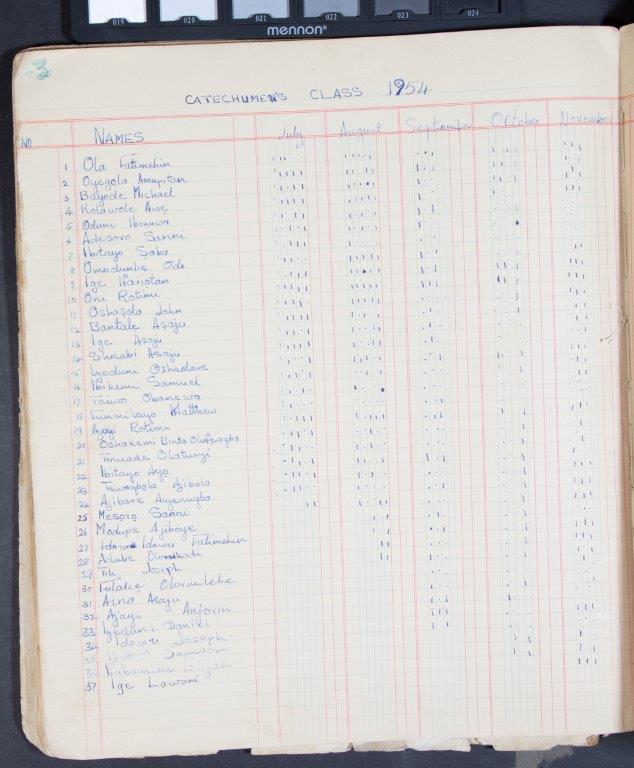 019 020 021 022 023 024
mennon®
3
CATECHUMEN'S CLASS 1954
NO NAMES July August September October November
1 Ola Fatimehin
2 Oyegola Amupitan
3 Bayode Michael
4 Kolawole Awe
5 Oduni Ibinuwa
6 Adesoro Sanni
7 Ibitayo Saba
8 Omodunke Odo
9 Ige
10 Oni Rotimi
11 Oshasola John
12 Bantale Asaju
13 Ige Asaju
14 Sholabi Asaju
15 Iyeduni Oshadare
16 Ibikemi Samuel
17 Taiwo Obanewa
18 Funmilayo Matthew
19 Ajayi Rotimi
20 Oshakemi Binta
21 Tinuade Olatunji
22 Ibitayo Ayo
23 Tewogbola Ajibola
24 Ajibare Aiyenugba
25 Mesoro Sanni
26 Modupe Ajiboye
27 Idowu Fatimehin
28 Adube
29 Joseph
30 Folake Olorunleke
31 Aina Asaju
32 Ajayi
33 Iyeduni Daniel
34 Idowu Joseph
35 Samson
36 Elijah
37 Ige Lawani